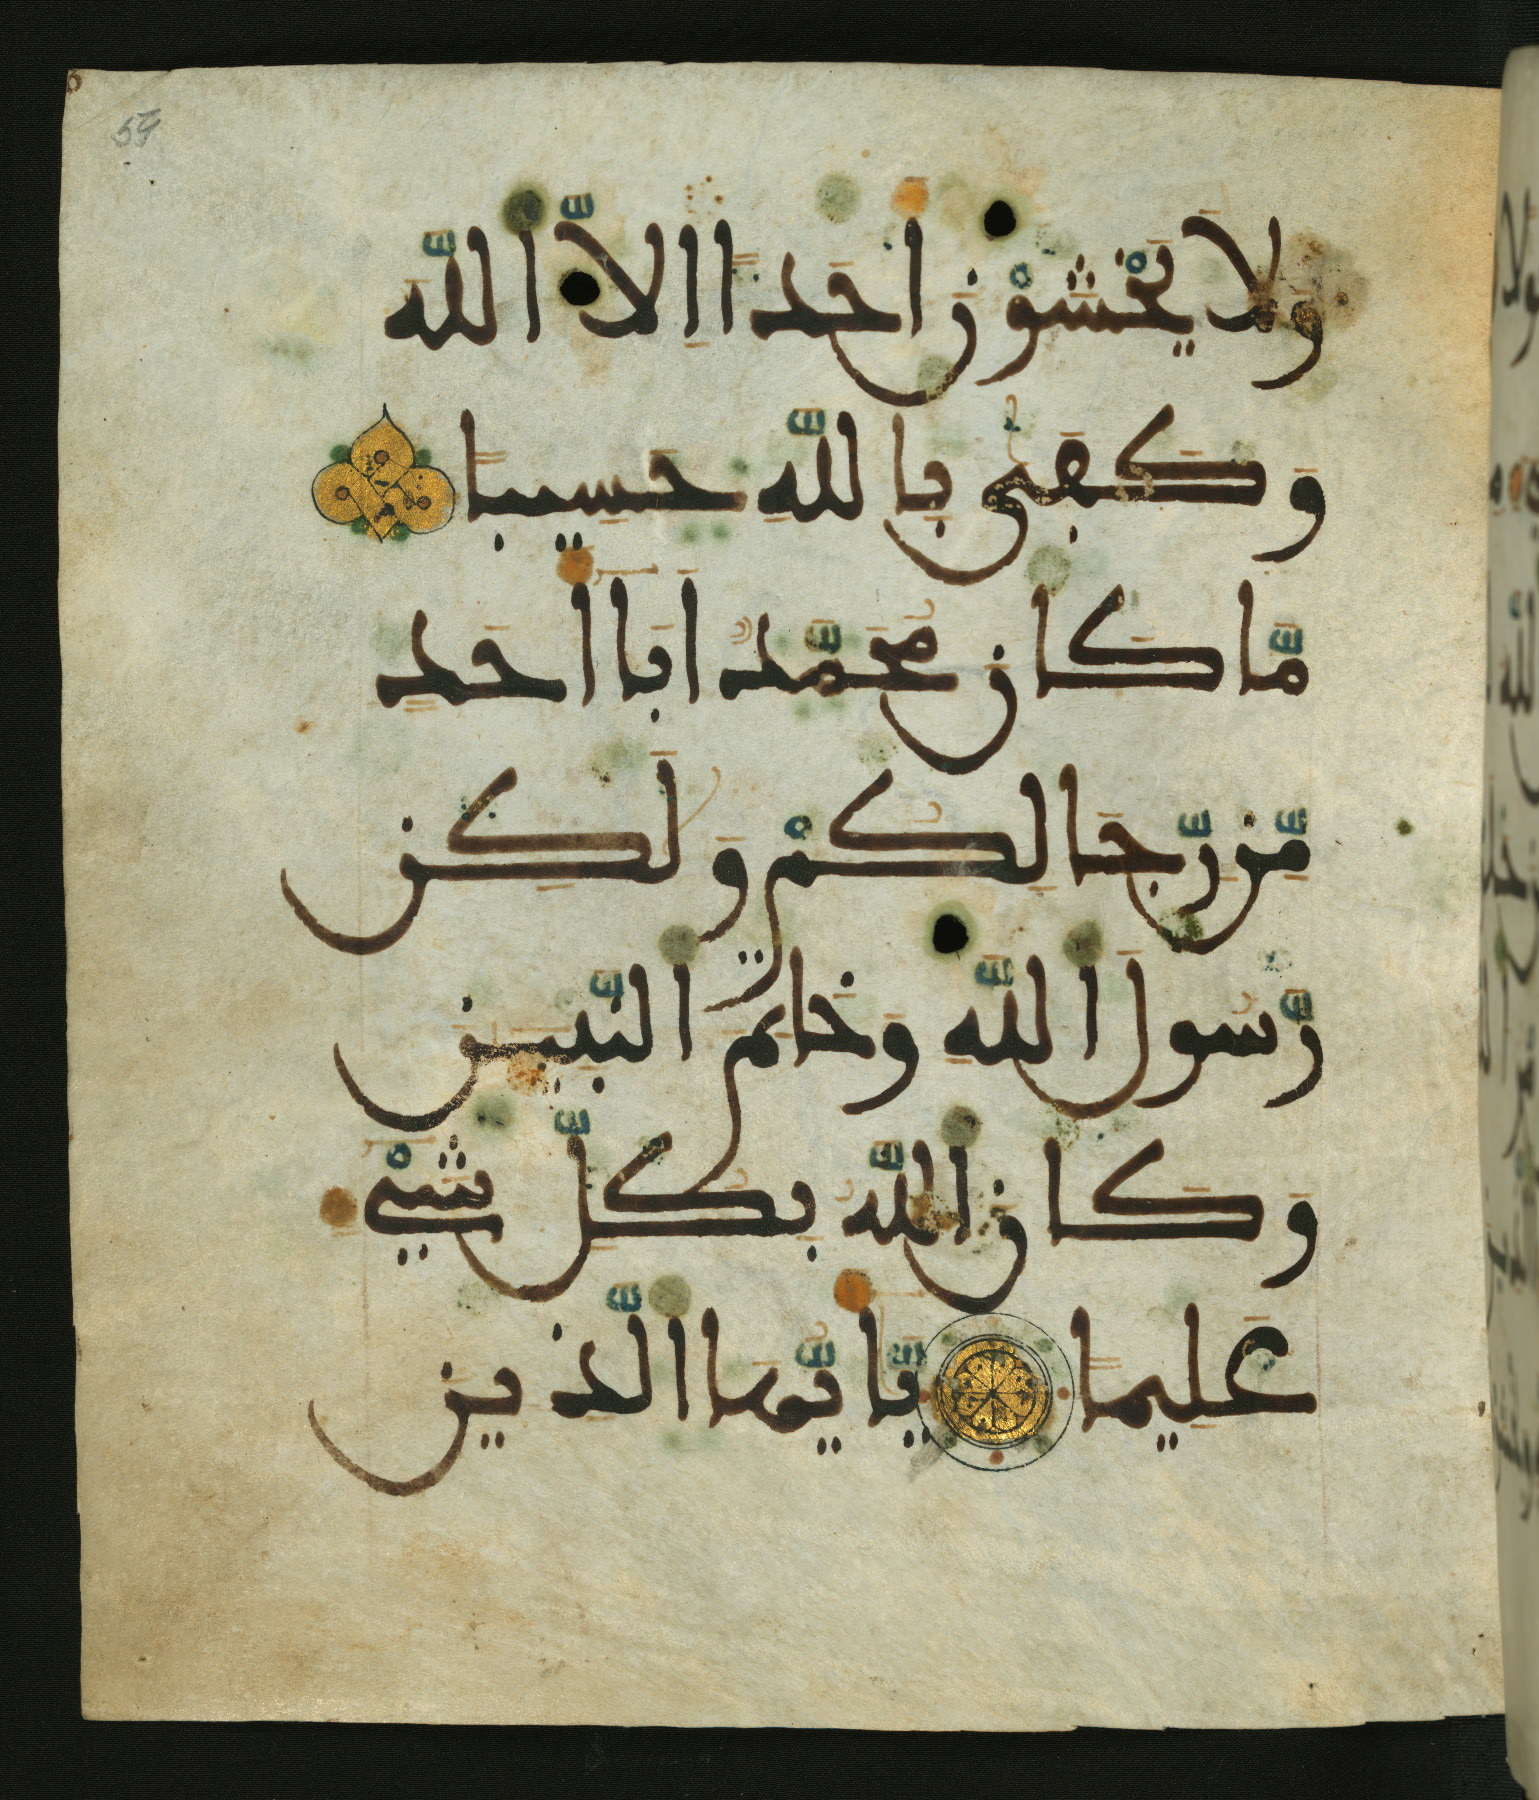 57
ولا يخشون احدا الا الله
وكفى بالله حسيبا
ما كان محمد ابا احد
من رجالكم ولكن
رسول الله وخاتم النبيين
وكان الله بكل شيء
عليما يايها الذين